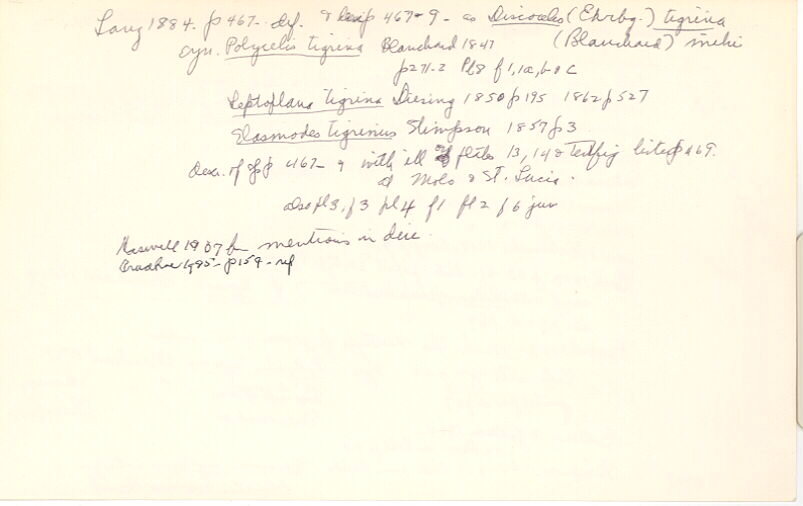 Lang 1884 - p 467 - def. & descrip 467-9 - as Discocelis (Ehrbg.) tigrina
syn. Polycelis tigrina Blanchard 1847 (Blanchard) mihi
p 271-2 Pl 8 f 1, 1a, b & c
Leptoplana tigrina Diesing 1850 p 195 1862 p 527
Elasmodes tigrinus Stimpson 1857 p 3
Desc. of 467-9 with ill of plates 13, 14 & textfig listed p 469.
at & St. Lucia.
also pl 3. f 3 pl 4 f 1 pl 2 f 6 juv
Haswell 1907 b mentions in disc.
p 159 - ref